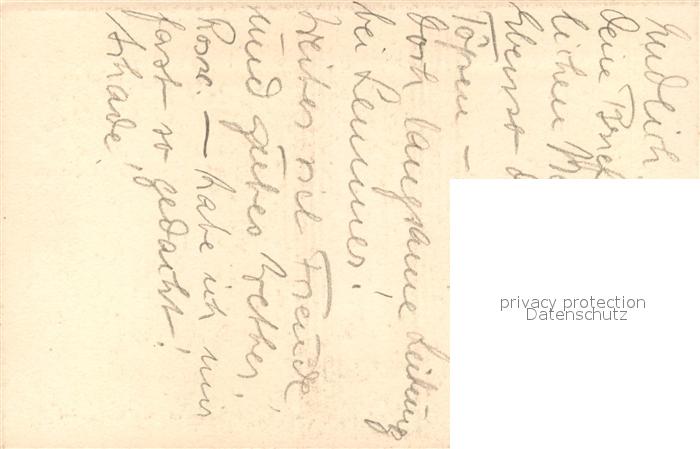 Endlich
Deine Brief
lichen
Ebenso d
Töpen –
doch langsame Leitung
bei Lemmer!
Weiter viel Freude,
und gutes Wetter.
Rose. — habe ich mir
fast so gedacht!
Schade!
privacy protection
Datenschutz